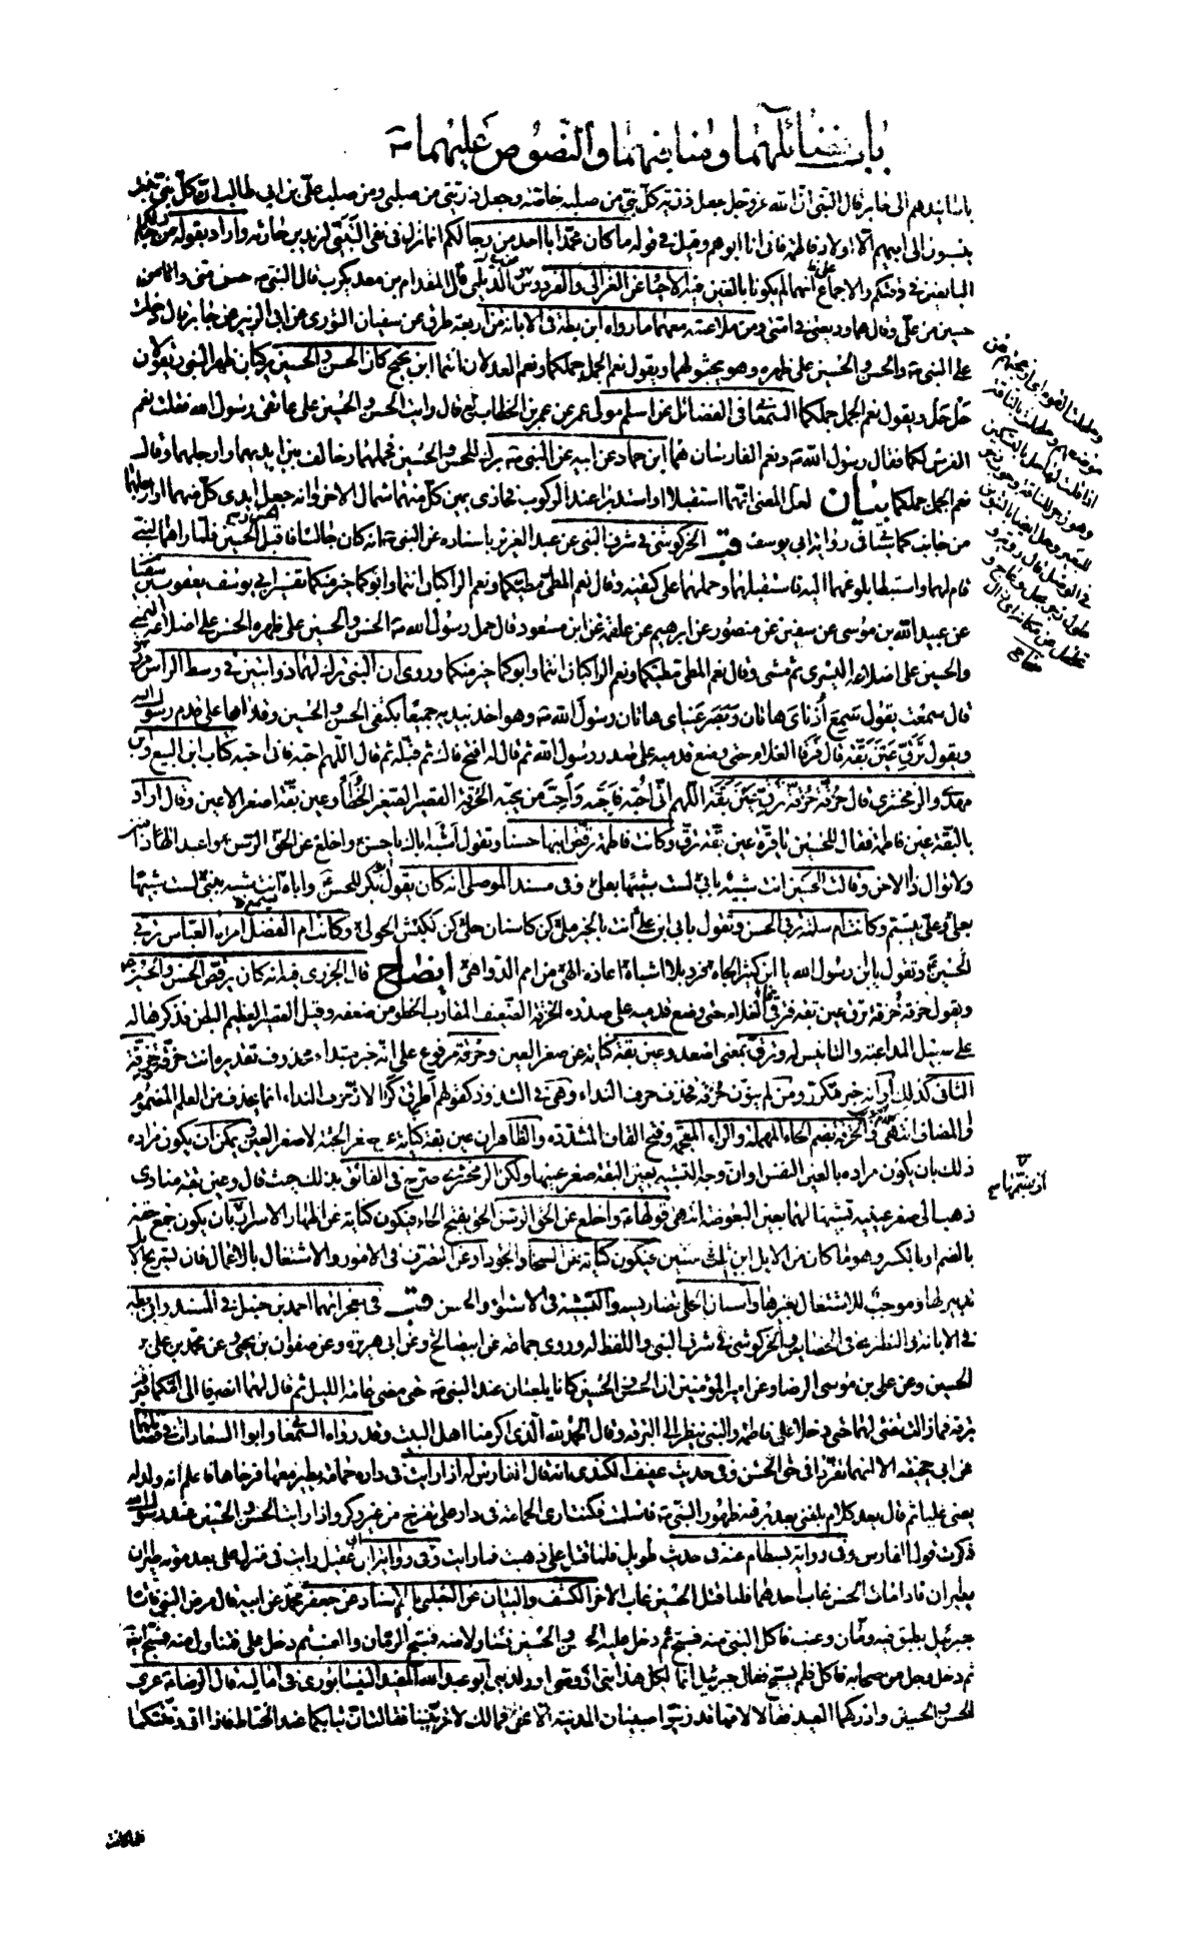 باب فضائلهما ومناقبهما والنصوص عليهما
باسانيدهم الى جابر قال النبى ان الله عز وجل جعل ذرية كل نبى من صلبه خاصة وجعل ذريتى من صلبى ومن صلب على بن ابى طالب ان كل بنى بنت
ينسبون الى ابيهم الا اولاد فاطمة فانى انا ابوهم وقيل فى قوله ما كان محمد ابا احد من رجالكم انما نزل فى نفى التبنى لزيد بن حارثة واراد بقوله من رجالكم
البالغين فى وقتكم والاجماع على انهما لم يكونا بالغين فيه الاحياء عن الغزالى والفردوس عن الديلمى قال المقدام بن معد يكرب قال النبى حسن منى
حسين من على وقال هما وديعتى فى امتى ومن ملاعبته معهما ما رواه ابن بطة فى الابانة من اربعة طرق عن سفيان الثورى عن ابى الزبير عن جابر قال دخلت
على النبى والحسن والحسين على ظهره وهو يجثو لهما ويقول نعم الجمل جملكما ونعم العدلان انتما ابن نجيح كان الحسن والحسين يركبان ظهر النبى ويقولان
حل حل ويقول نعم الجمل جملكما السمعانى فى الفضائل عن اسلم مولى عمر عن عمر بن الخطاب قال رايت الحسن والحسين على عاتقى رسول الله فقلت نعم
الفرس لكما فقال رسول الله ونعم الفارسان هما ابن حماد عن ابيه عن النبى برك للحسن والحسين فحملهما وخالف بين ايديهما وارجلهما وقال
نعم الجمل جملكما بيان لعل المعنى انهما استقبلا او استدبرا عند الركوب فحاذى يمين كل منهما شمال الاخر او انه جعل ايدى كل منهما او ارجلهما
من خلف كما يتاتى رواية ابى يوسف قب الخركوشى فى شرف النبى عن عبد العزيز باسناده عن النبى انه كان جالسا فاقبل الحسن والحسين فلما راهما النبى
قام لهما واستبطا بلوغهما اليه فاستقبلهما وحملهما على كتفيه وقال نعم المطى مطيكما ونعم الراكبان انتما وابوكما خير منكما تفسير ابى يوسف يعقوب بن سفيان
عن عبيد الله بن موسى عن سفين عن منصور عن ابرهيم عن علقمة عن ابن مسعود قال حمل رسول الله الحسن والحسين على ظهره الحسن على اضلاعه اليمنى
والحسين على اضلاعه اليسرى ثم مشى وقال نعم المطى مطيكما ونعم الراكبان انتما وابوكما خير منكما وروى ان النبى ترك لهما ذوابتين فى وسط الراس
قال سمعت يقول سمع اذناى هاتان وبصر عيناى هاتان رسول الله وهو اخذ بيديه جميعا بكتفى الحسن والحسين وقدماهما على قدم رسول الله
ويقول ترق عين بقة قال فرقا الغلام حتى وضع قدميه على صدر رسول الله ثم قال له افتح فاك ثم قبله ثم قال اللهم احبه فانى احبه كتاب ابن البيع وابن
مهدى والزمخشرى قال حزقة حزقة ترق عين بقة اللهم انى احبه فاحبه واحب من يحبه الحزقة القصير الصغير الخطا وعين بقة اصغر الاعين وقال اراد
بالبقة عين فاطمة فقال للحسين يا قرة عين بقة ترق وكانت فاطمة ترقص ابنها حسنا وتقول اشبه اباك يا حسن واخلع عن الحق الرسن واعبد الها ذا منن
ولا توال ذا الاحن وقالت للحسين انت شبيه بابى لست شبيها بعلى وفى مسند الموصلى انه كان يقول ابو بكر للحسن وانا بابى شبيه بنبى لست شبيها
بعلى وعلى يتبسم وكانت ام سلمة تربى الحسن وتقول بابى ابن على انت بالخير ملى كن كاسنان حلى كن ككبش الحولى وكانت ام الفضل امراة العباس تربى
الحسين وتقول يا ابن رسول الله يا ابن كثير الجاه فرد بلا اشباه اعاذه الهى من امم الدواهى ايضاح قال الجزرى فيه انه كان يرقص الحسن والحسين
ويقول حزقة حزقة ترق عين بقة فترقى الغلام حتى وضع قدميه على صدره الحزقة الضعيف المقارب الخطو من ضعفه وقيل القصير العظيم البطن فذكرها له
على سبيل المداعبة والتانيس له وترق بمعنى اصعد وعين بقة كناية عن صغر العين وحزقة مرفوع على انه خبر مبتداء محذوف تقديره انت حزقة وحزقة
الثانى كذلك او انه خبر مكرر ومن لم ينون حزقة فحذف حرف النداء وهى فى الشذوذ كقولهم اطرق كرا لان حرف النداء انما يحذف من العلم المضموم
او المضاف انتهى فالحزقة بضم الحاء المهملة والزاء المعجمة وفتح القاف المشددة والظاهر ان عين بقة كناية عن صغر الجثة لا صغر العين ويمكن ان يكون مراده
ذلك بان يكون مراده بالعين النفس او ان وجه التشبيه بعين البقة صغر عينها ولكن الزمخشرى صرح فى الفائق بذلك حيث قال وعين بقة منادى
ذهب الى صغر عينيه تشبيها لهما بعين البعوضة انتهى قولها واخلع عن الحق الرسن الحق بفتح الحاء فيكون كناية عن اظهار الاسرار بان يكون جمع حقة
بالضم او بالكسر وهو ما كان من الابل ابن ثلث سنين فيكون كناية عن السخاء والجود او عن التصرف فى الامور والاشتغال بالاعمال فان تسريح الابل
تدبير لها وموجب للاشتغال بغيرها واسنان الحلى تضاريسه والتشبيه فى الاستواء والحسن قب فى معجزاتهما احمد بن حنبل فى المسند وابن بطة
فى الابانة والنطنزى فى الخصايص والخركوشى فى شرف النبى واللفظ له وروى جماعة عن ابى صالح وعن ابى هريرة وعن صفوان بن يحيى عن محمد بن على بن
الحسين وعن على بن موسى الرضا وعن امير المؤمنين ان الحسن والحسين كانا يلعبان عند النبى حتى مضى عامة الليل ثم قال لهما انصرفا الى امكما فبرقت
برقة فما زالت تضىء لهما حتى دخلا على فاطمة والنبى ينظر الى البرقة وقال الحمد لله الذى اكرمنا اهل البيت وقد رواه السمعانى وابو السعادات فى فضائلهما
عن ابى جحيفة الا انهما تفردا فى حق الحسن وفى حديث عفيف الكندى انه قال الفارس له اذا رايت فى داره حمامة يطير معها فرخاها فاعلم انه ولد له
يعنى عليا ثم قال بعد كلام بلغنى بعد برهة ظهور النبى فاسلمت فكنت ارى الحمامة فى دار على تفرخ من غير وكر واذا رايت الحسن والحسين عند رسول الله
ذكرت قول الفارس وفى رواية بسطام عنه فى حديث طويل فلما قتل على ذهبت فما رايت وفى رواية ابى عقيل رايت فى منزل على بعد موته طيران
يطيران فاذا مات الحسن غاب احدهما فلما قتل الحسين غاب الاخر الكشف والبيان عن الثعلبى بالاسناد عن جعفر بن محمد عن ابيه قال مرض النبى فاتاه
جبرئيل بطبق فيه رمان وعنب فاكل النبى منه فسبح ثم دخل عليه الحسن والحسين فتناولا منه فسبح الرمان والعنب ثم دخل على فتناول منه فسبح ايضا
ثم دخل رجل من صحابه فاكل فلم يسبح فقال جبرئيل انما ياكل هذا نبى او وصى او ولد نبى ابو عبد الله المفيد النيسابورى فى اماليه قال الرضا عرى
الحسن والحسين وادركهما العيد فقالا لامهما قد زينوا صبيان المدينة الا نحن فمالك لا تزينينا فقالت ان ثيابكما عند الخياط فاذا اتانى زينتكما
فلما كانت